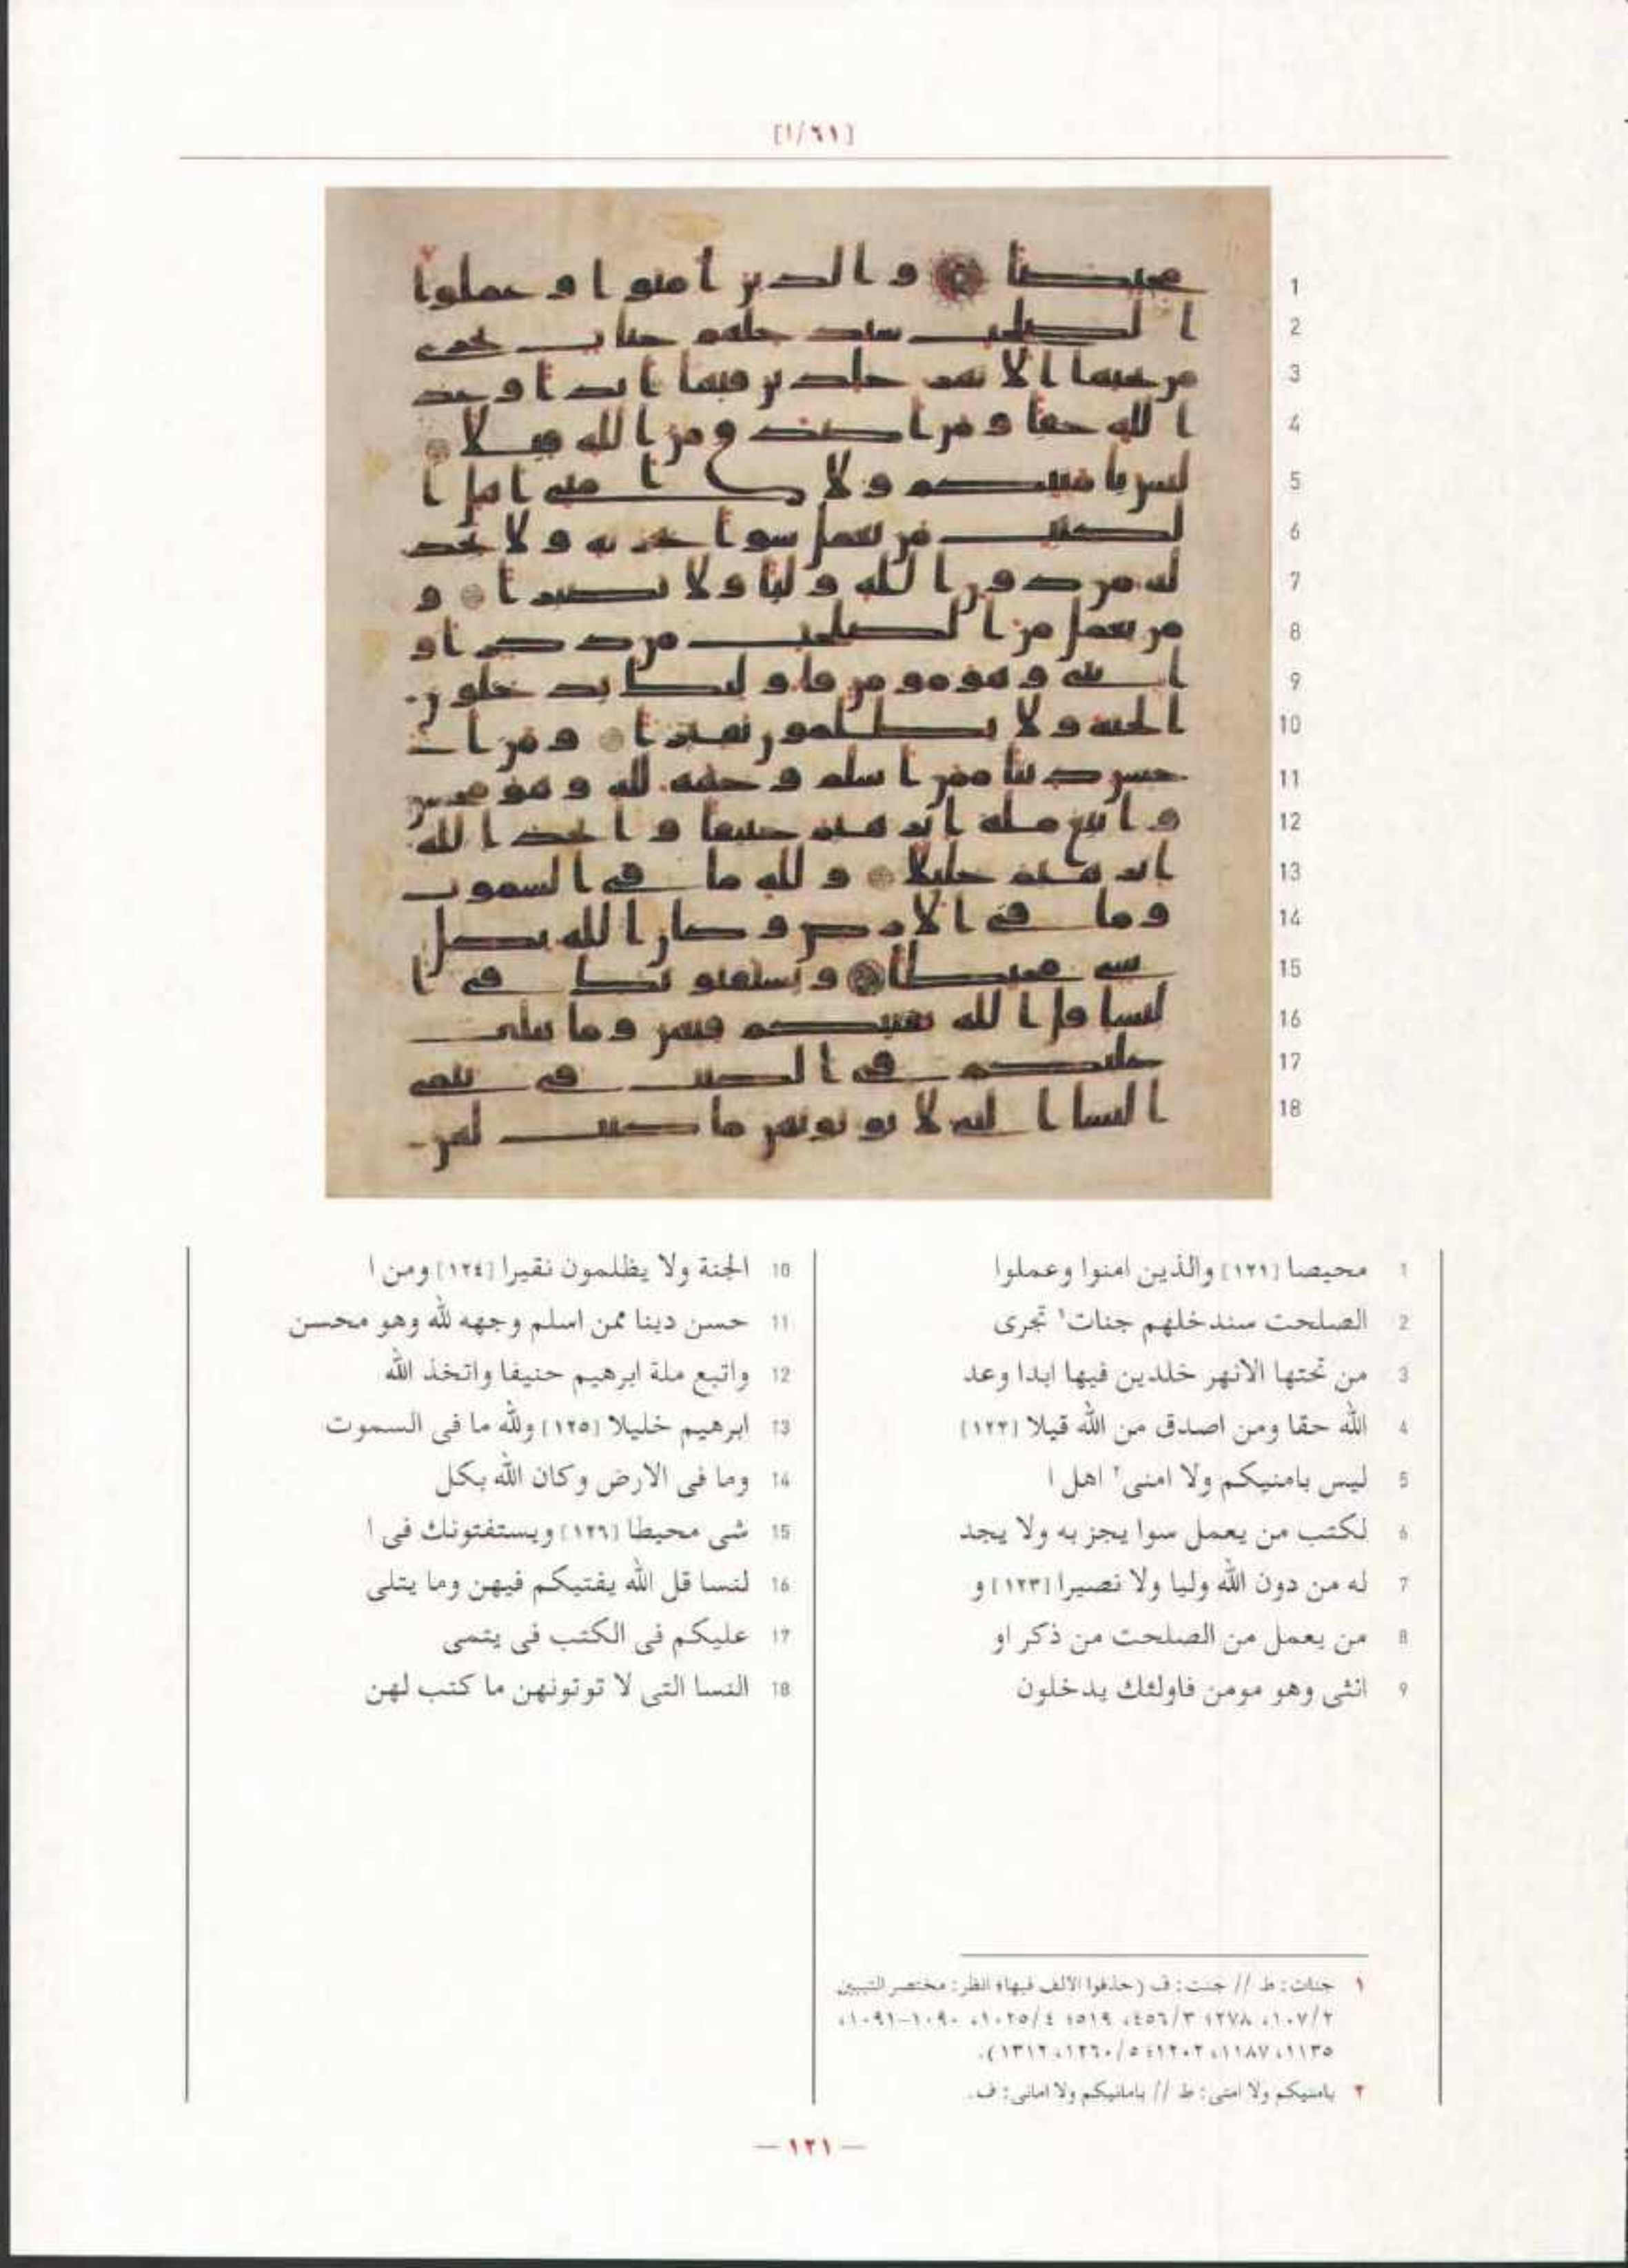 [١/٦١]
1 محيصا [١٢١] والذين امنوا وعملوا
2 الصلحت سندخلهم جنات١ تجرى
3 من تحتها الانهر خلدين فيها ابدا وعد
4 الله حقا ومن اصدق من الله قيلا [١٢٢]
5 ليس بامنيكم ولا امنى٢ اهل ا
6 لكتب من يعمل سوا يجز به ولا يجد
7 له من دون الله وليا ولا نصيرا [١٢٣] و
8 من يعمل من الصلحت من ذكر او
9 انثى وهو مومن فاولئك يدخلون
10 الجنة ولا يظلمون نقيرا [١٢٤] ومن ا
11 حسن دينا ممن اسلم وجهه لله وهو محسن
12 واتبع ملة ابرهيم حنيفا واتخذ الله
13 ابرهيم خليلا [١٢٥] ولله ما فى السموت
14 وما فى الارض وكان الله بكل
15 شى محيطا [١٢٦] ويستفتونك فى ا
16 لنسا قل الله يفتيكم فيهن وما يتلى
17 عليكم فى الكتب فى يتمى
18 النسا التى لا توتونهن ما كتب لهن
١ جنات: ط // جنت: ف (حذفوا الالف فيها؛ انظر: مختصر التبيين
٢/١٠٧، ٢٧٨؛ ٣/٤٥٦، ٥١٩؛ ٤/١٠٢٥، ١٠٩٠–١٠٩١،
١١٣٥، ١١٨٧، ١٢٠٢؛ ٥/١٢٦٠، ١٣١٢).
٢ بامنيكم ولا امنى: ط // بامانيكم ولا امانى: ف.
— ١٢١ —